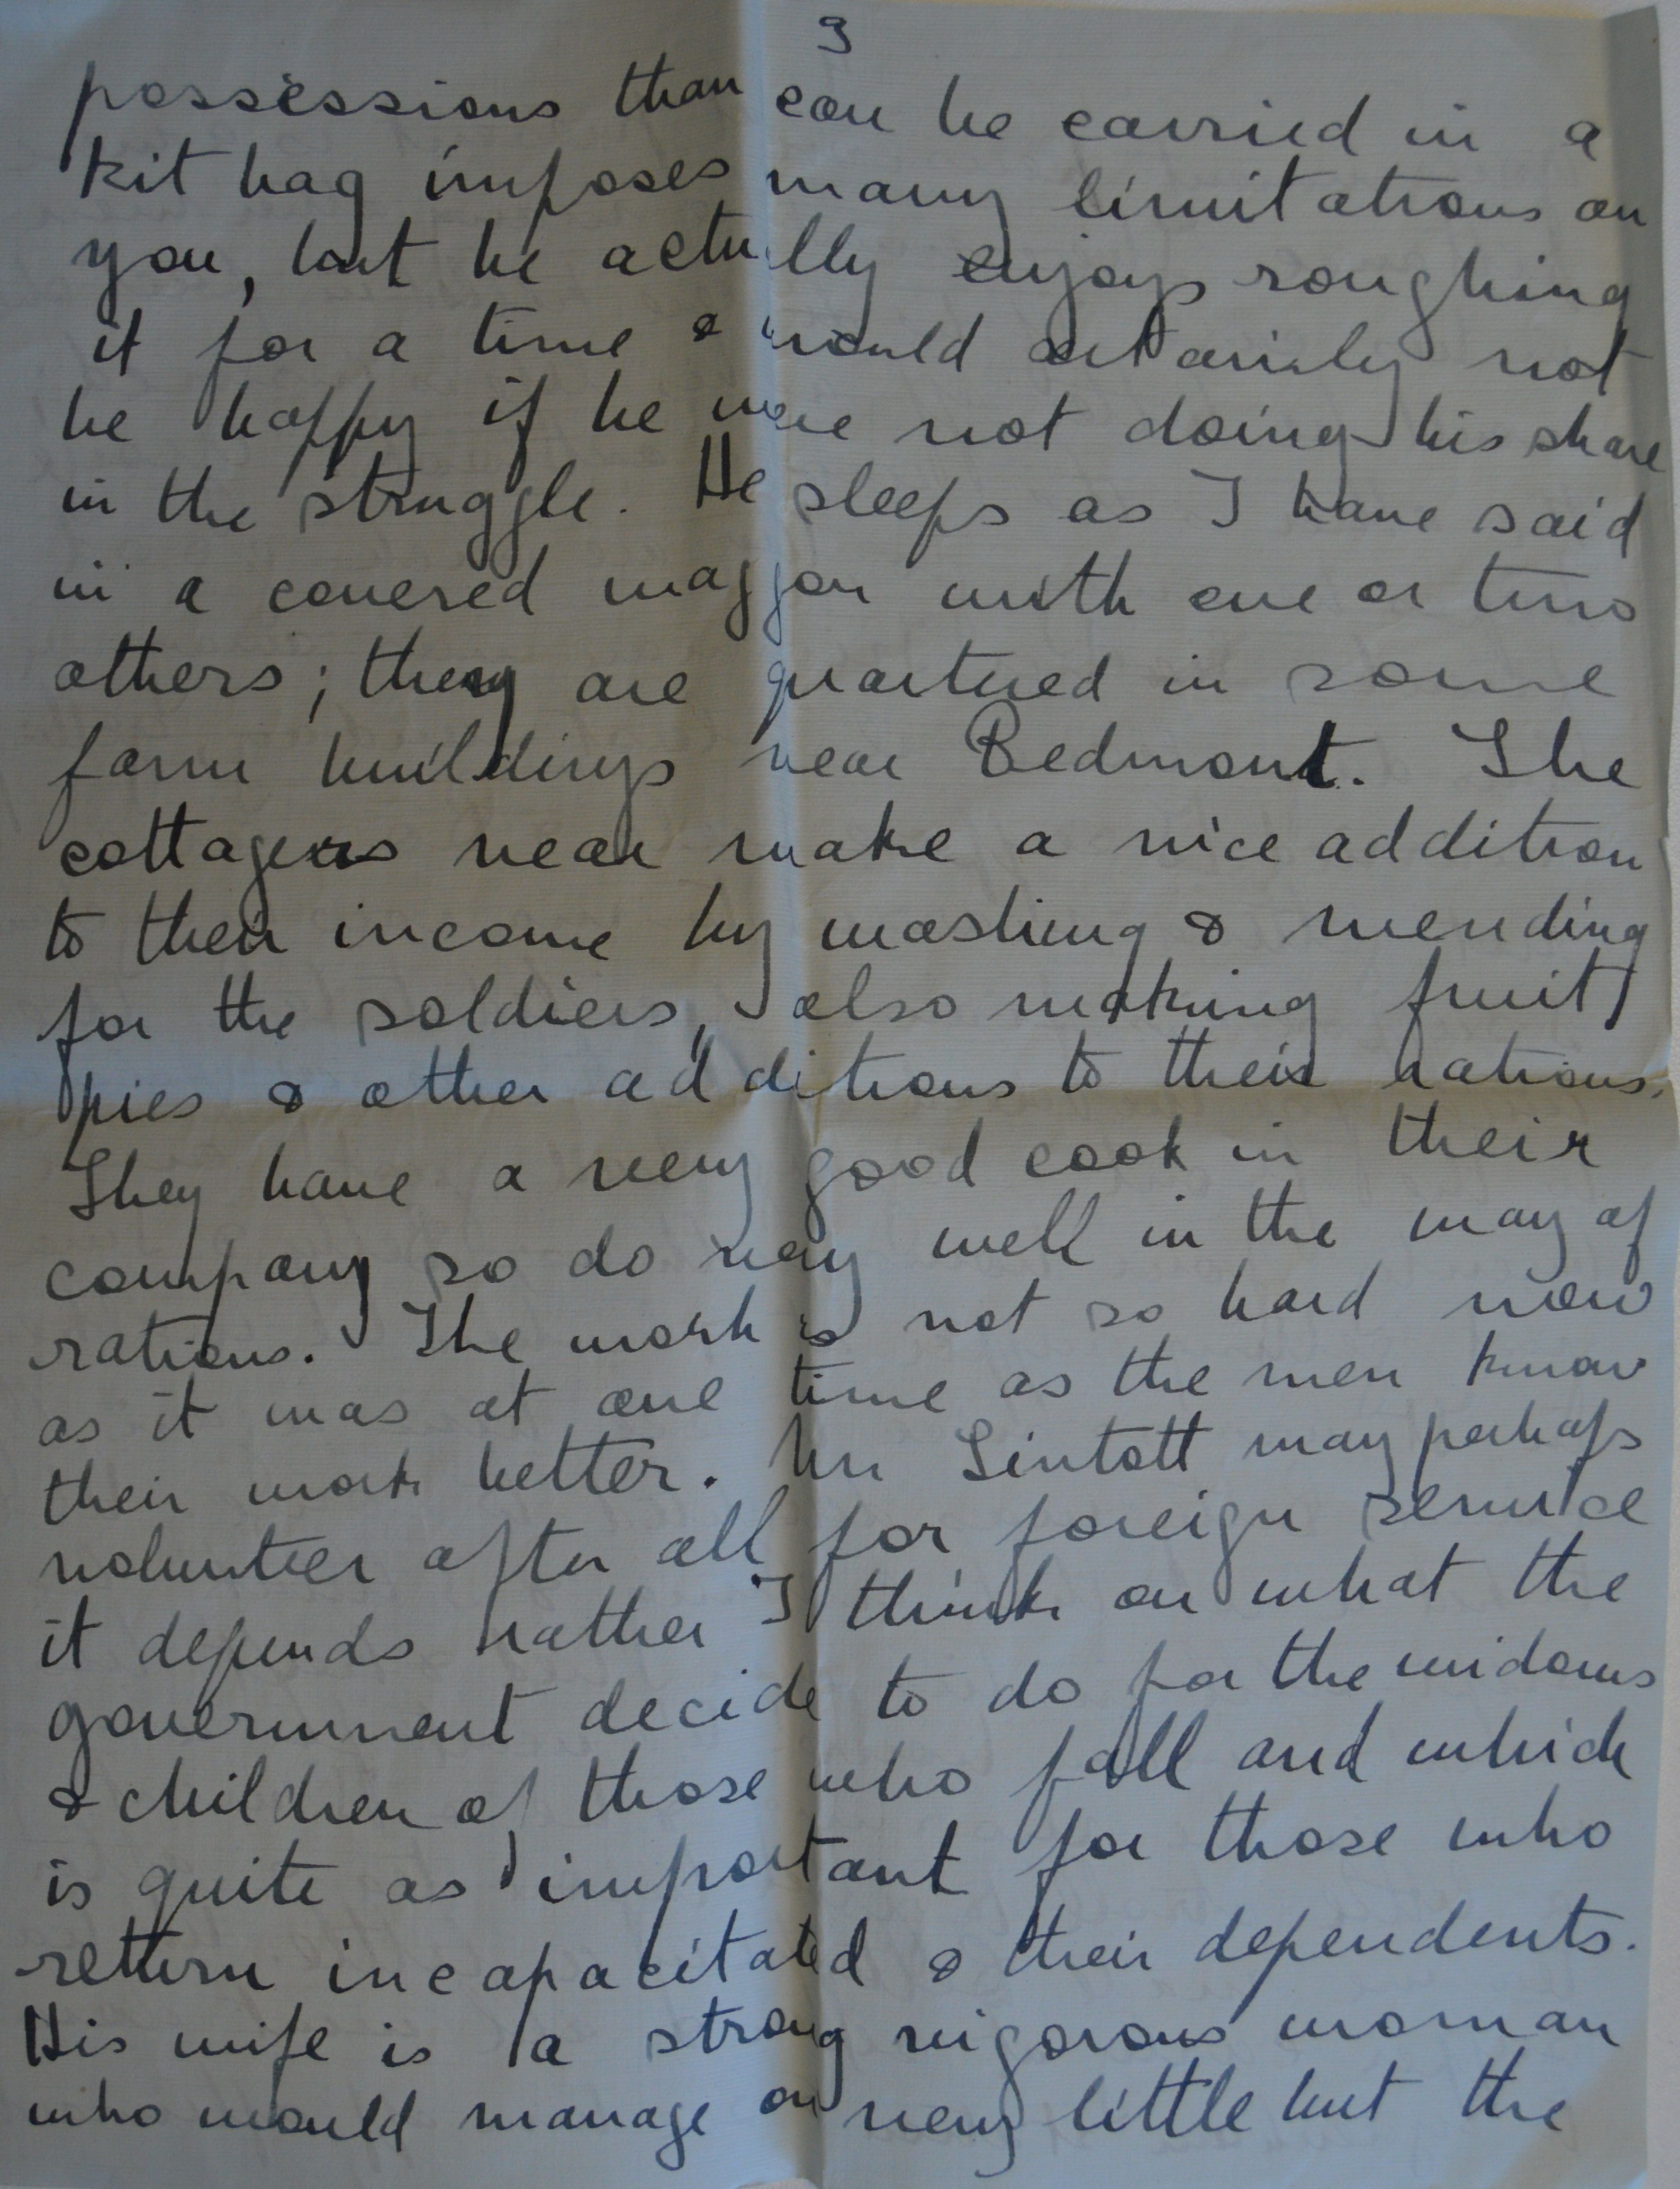 3
possessions than can be carried in a
kit bag imposes many limitations on
you, but he actually enjoys roughing
it for a time & would certainly not
be happy if he were not doing his share
in the struggle. He sleeps as I have said
in a covered waggon with one or two
others; they are quartered in some
farm buildings near Bedmont. The
cottagers near make a nice addition
to their income by washing & mending
for the soldiers, also making fruit
pies & other additions to their rations.
They have a very good cook in their
company so do very well in the way of
rations. The work is not so hard now
as it was at one time as the men know
their work better. Mr Lintott may perhaps
volunteer after all for foreign service
it depends rather I think on what the
government decide to do for the widows
& children of those who fall and which
is quite as important for those who
return incapacitated & their dependents.
His wife is a strong vigorous woman
who would manage on very little but the